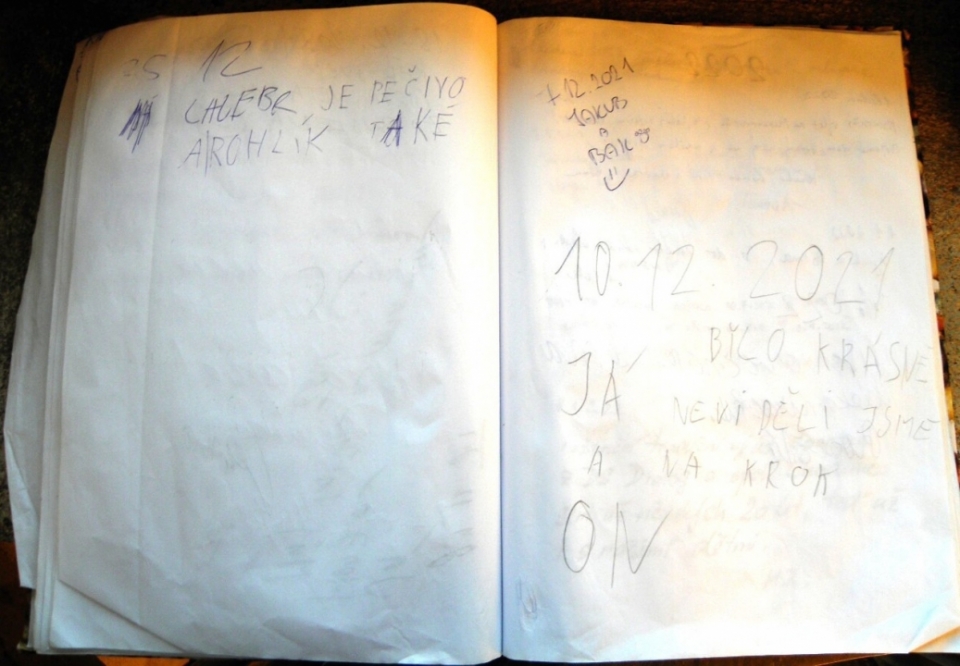 25 12
CHLEBA, JE PEČIVO
A ROHLÍK TAKÉ
7.12.2021
JAKUB
A
10.12.2021
BÍLO KRÁSNĚ
JÁ NEVIDĚLI JSME
A NA KROK
ON